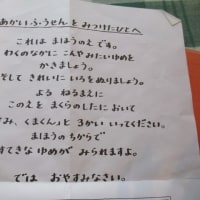 あかいふうせんをみつけたひとへ
これは まほうのえ です。
わくのなかに こんや みたいゆめを
かきましょう。
そして きれいに いろをぬりましょう。
よる ねるまえに
このえを まくらのしたに おいて
み、くまくん」と 3かい いってください。
まほうの ちからで
てきな ゆめが みられますよ。
では おやすみなさい。